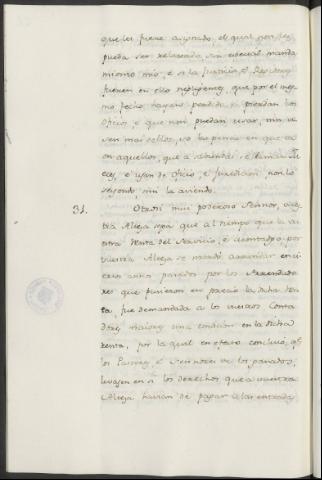 que les fuere asyntado, el qual non les
pueda ser relaxado sin especial manda
miento mio, e si la Justicia, e Regidores
fueren en ello negligentes, que por el mes
mo fecho hayan perdido e pierdan los
oficios, e que non puedan usar, nin u
sen mas dellos, so las penas en que ca
en aquellos, que a sabiendas se llaman Jue
ces, e usan de oficio, e jurediccion non lo
seyendo, nin la aviendo.
31. Otrosi mui poderoso Señor, vues
tra Alteza sepa que al tiempo que la vu
estra Renta del Servicio, e montazgo, por
vuestra Alteza se mandó arrendar en ci
ertos años pasados por los Arrendado
res que pusieron en precio la dicha Ren
ta, fue demandada a los vuestros Conta
dores maiores una condicion en la dicha
Renta, por la qual en efecto concluió, qe
los Pastores, e Señores de los ganados,
levasen en si los derechos que a vuestra
Alteza havian de pagar a las entrada